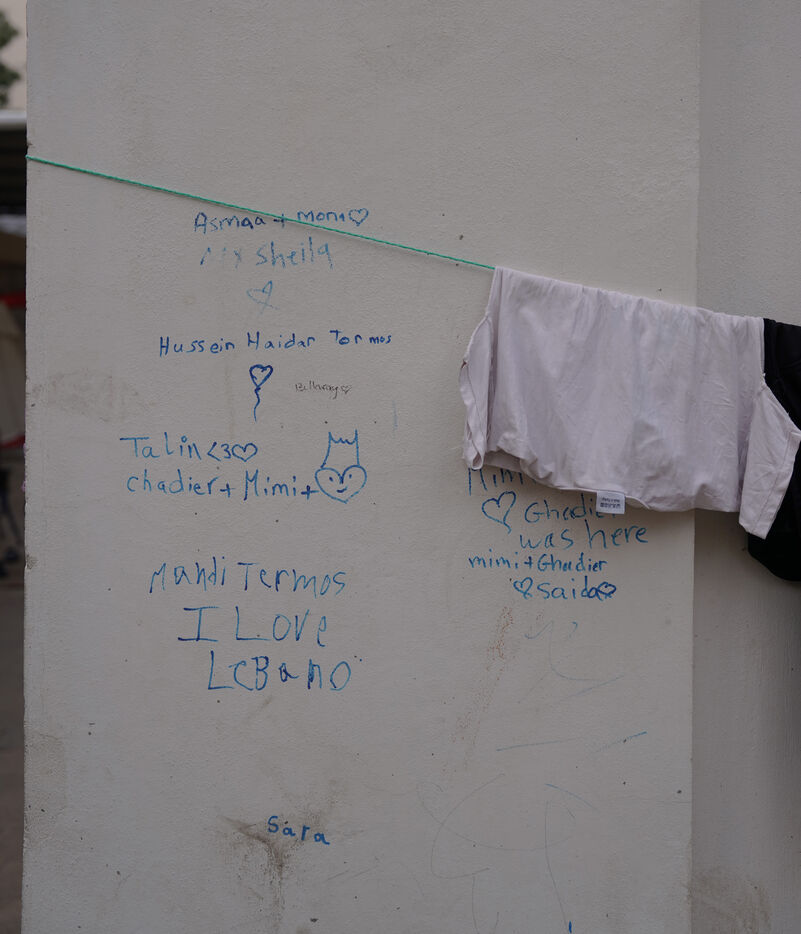 Asmaa + mona♡
sheila
Hussein Haidar Tormos
Talin<3♡
chadier + Mimi +
Mahdi Termos
I Love
LeBano
Sara
Mimi
Ghadier
was here
mimi + Ghadier
♡ Saida♡